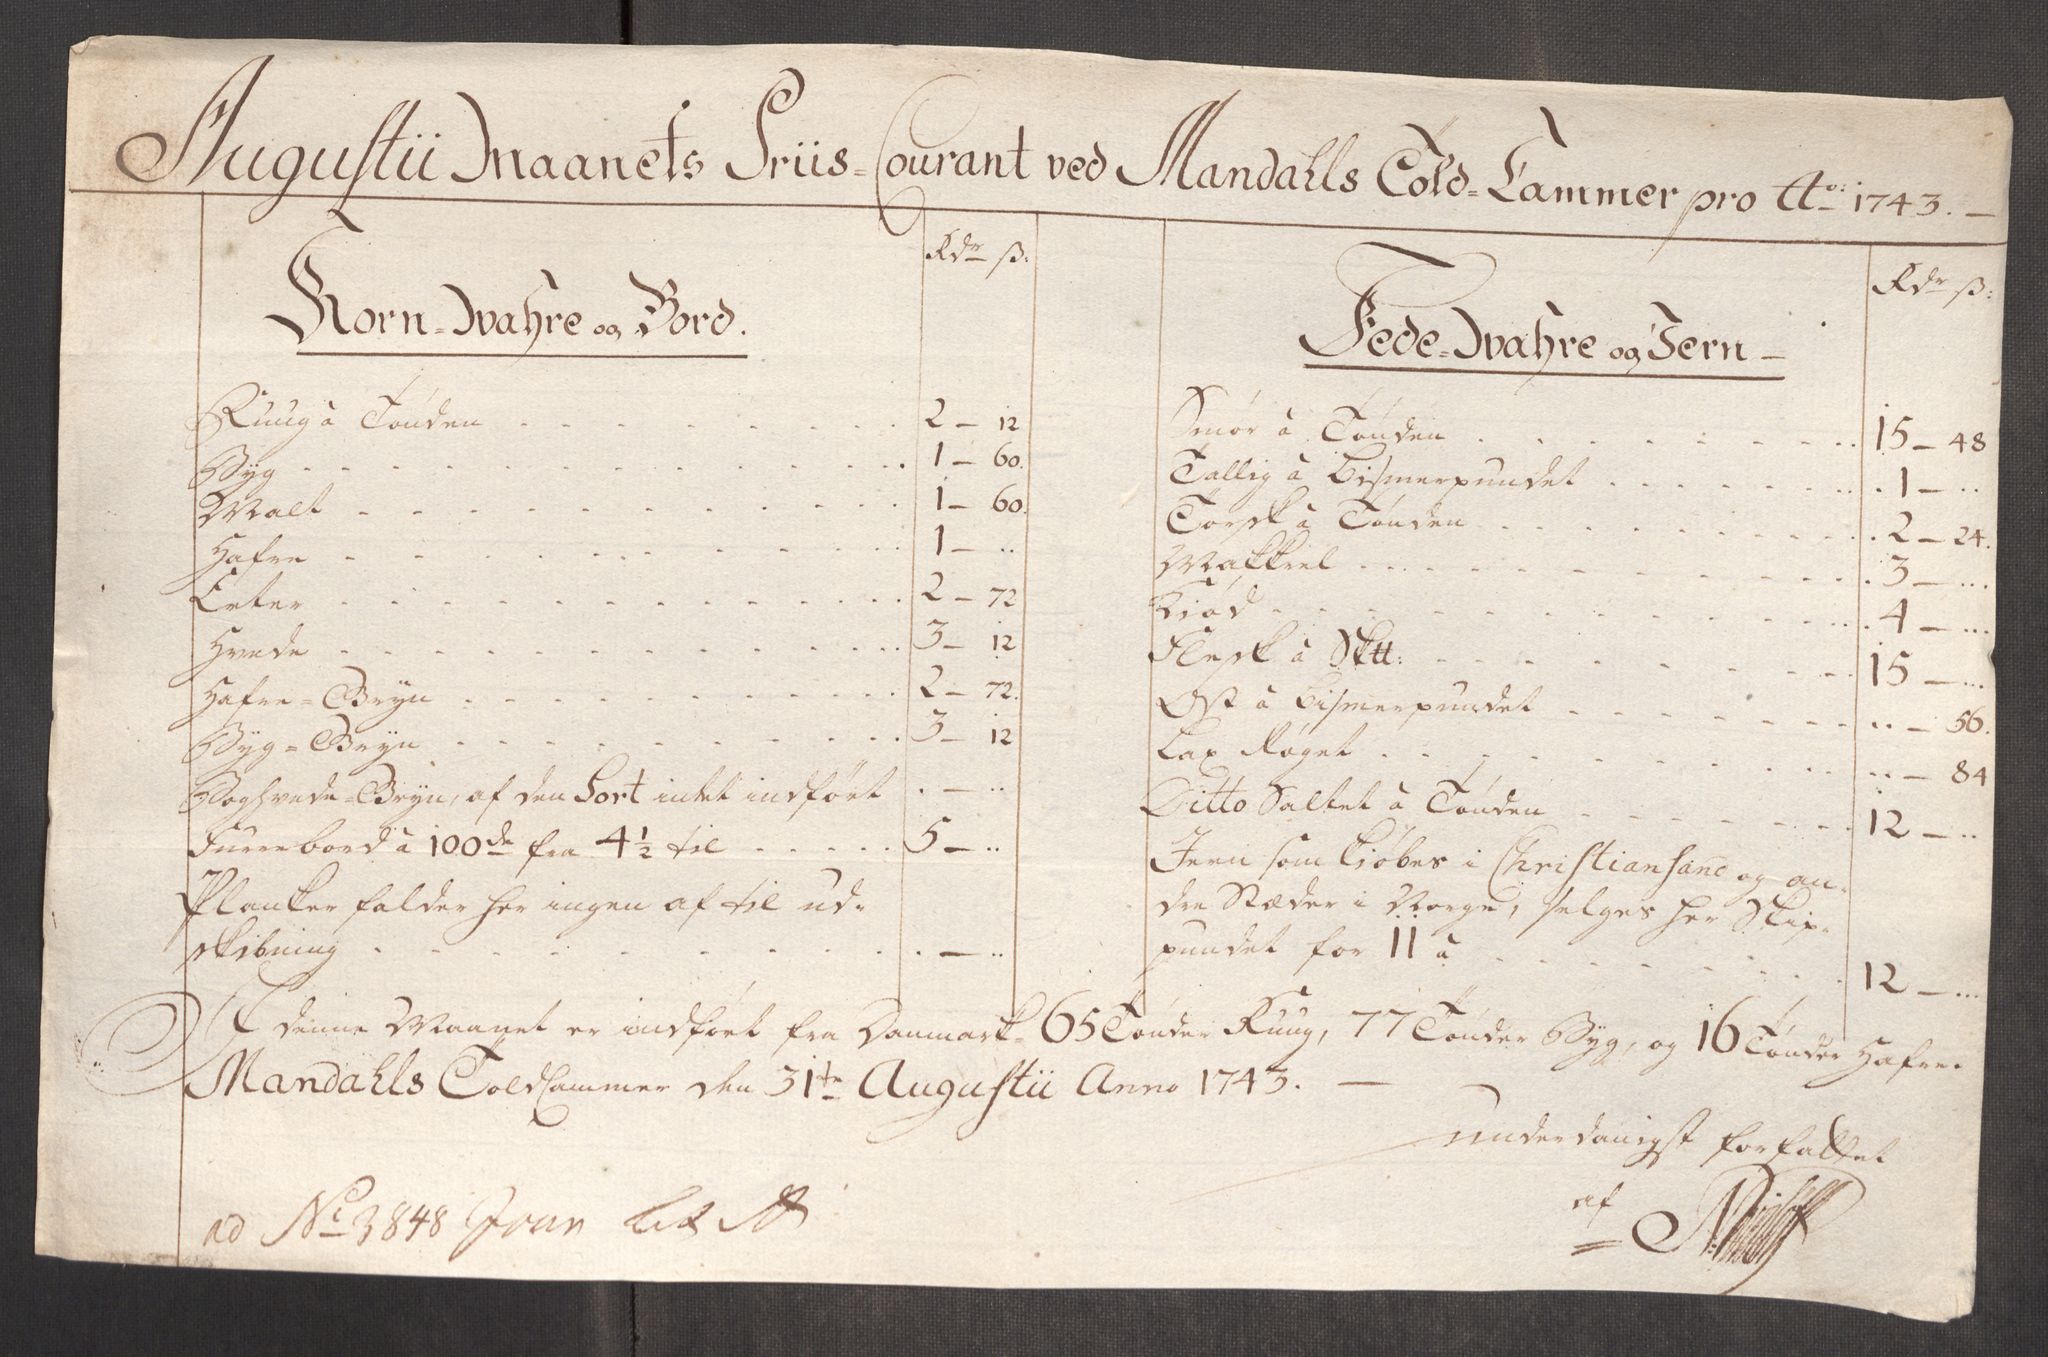 Augustii Maanets Priis-Courant ved Mandahls Told-Cammer pro Ao: 1743.
Rdr ß:
Korn-Wahre og Bord.
Ruug à Tønden 2 – 12
Byg 1 – 60.
Malt 1 – 60.
Hafre 1 – ..
Erter 2 – 72
Hvede 3 – 12
Hafre-Gryn 2 – 72.
Byg-Gryn 3 – 12
Boghvede-Gryn, af den Sort intet indført . – ..
Furrebord à 100de fra 4½ til 5 – ..
Planker falder her ingen af til ud-
skibning . – ..
Rdr ß:
Fede-Wahre og Jern –
Smør à Tønden 15 – 48
Tallig à Bismerpundet 1 – ..
Torsk à Tønden 2 – 24.
Makkrel 3 – ...
Kiød 4 – ...
Flesk à Sktt: 15 – ...
Ost à Bismerpundet .. – 56.
Lax Røget .. – 84
Ditto Saltet à Tønden 12 – ..
Jern som kiøbes i Christiansand og an-
dre Stæder i Norge, selges her Skip-
pundet for 11 à 12 – ...
I denne Maanet er indført fra Danmark 65 Tønder Ruug, 77 Tønder Byg, og 16 Tønder Hafre.
Mandahls Toldcammer den 31te Augustii Anno 1743. –
underdanigst forfattet
af
ad No 3848